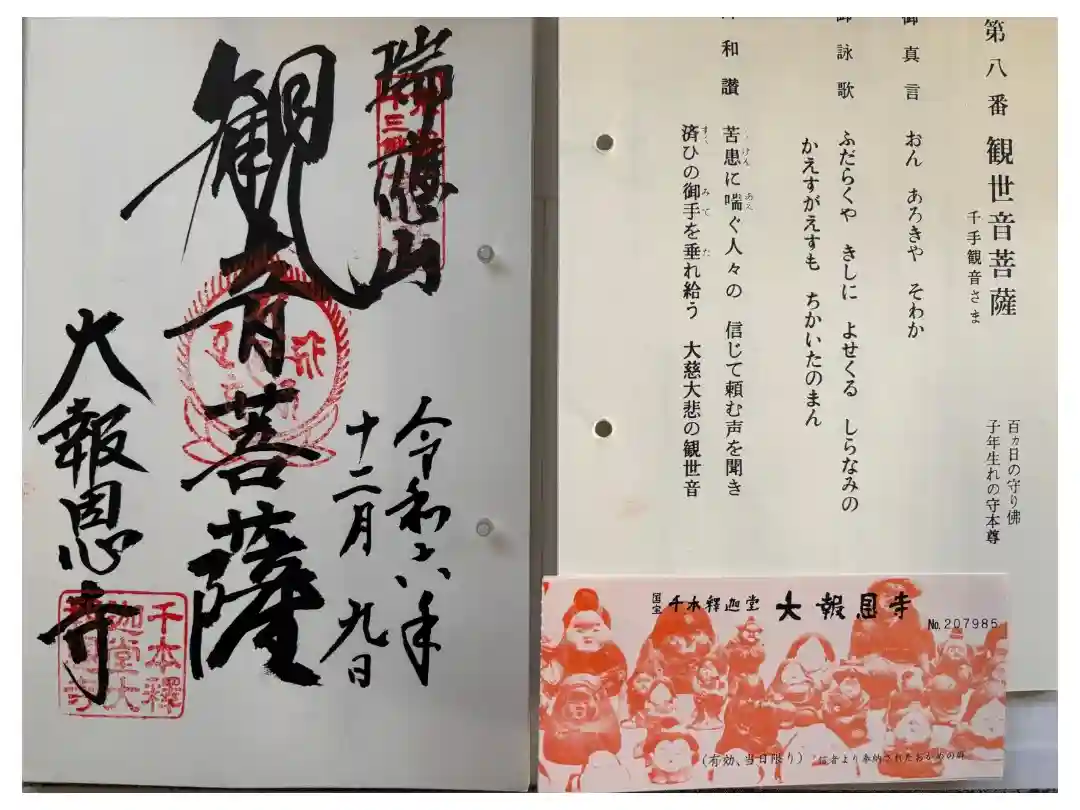 瑞應山
令和六年
十二月九日
観音菩薩
大報恩寺
千本釋
迦堂大
第八番 観世音菩薩
千手観音さま
百ヵ日の守り佛
子年生れの守本尊
御真言 おん あろきや そわか
御詠歌 ふだらくや きしに よせくる しらなみの
かえすがえすも ちかいたのまん
和讃 苦患に喘ぐ人々の 信じて頼む声を聞き
済ひの御手を垂れ給う 大慈大悲の観世音
国宝 千本釋迦堂 大報恩寺
No.207985
(有効、当日限り) 信者より奉納されたおかめの群